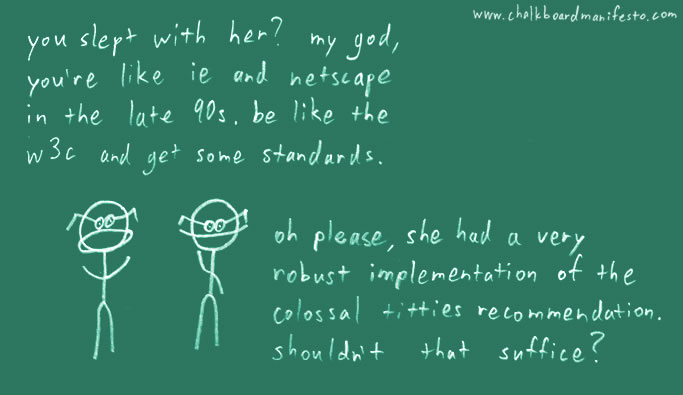 www.chalkboardmanifesto.com
you slept with her? my god,
you're like ie and netscape
in the late 90s. be like the
w3c and get some standards.
oh please, she had a very
robust implementation of the
colossal titties recommendation.
shouldn't that suffice?